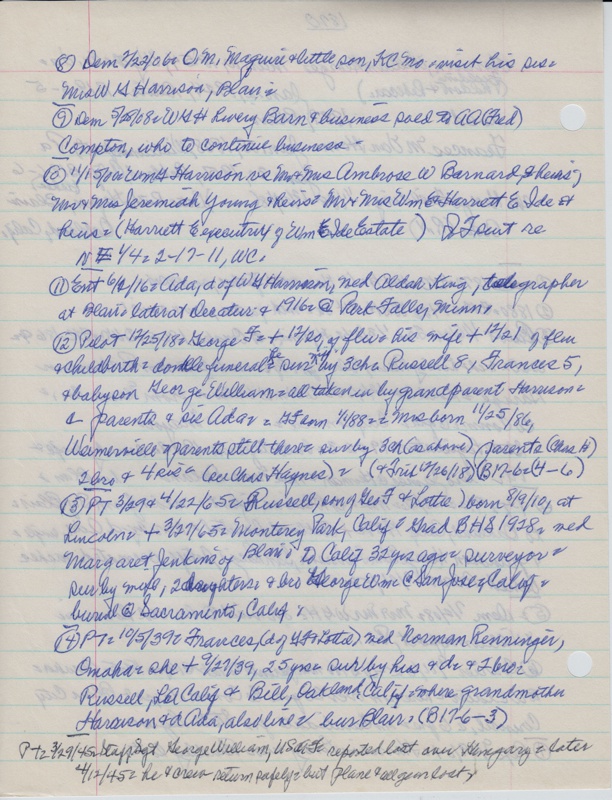 ⑧ Dem 2/22/06 = O.M. Maguire & little son, KC Mo = visit his sis =
Mrs W H Harrison, Blair =
⑨ Dem 5/25/08 = WHH Livery Barn & business sold to AA (Fred)
Compton, who to continue business =
⑩ 11/15/ Wm H Harrison vs Mr & Mrs Ambrose W Barnard, & heirs;
Mr & Mrs Jeremiah Young & heirs = Mr & Mrs Wm E & Harrett E Ide &
heirs = (Harrett Executrix of Wm E Ide Estate) QT suit re
N 1/4 = 2-17-11, WC.
⑪ Ent 6/2/16 = Ada, d of WH Harrison, med Aldah King, telegrapher
at Blair = later at Decatur & 1916 = @ Park Falls, Minn.
⑫ Pilot 12/25/18 = George F = + 12/20, of flu = his wife + 12/21 of flu
& childbirth = double funeral = sur by 3 ch = Russell 8, Frances 5,
& baby son George William = all taken in by grandparent Harrison =
parents & sis Ada = born 1/88 = Mrs born 11/25/86,
Wannerville & parents still there = sur by 3 ch (as above) parents (Chas H)
2 bro & 4 sis = (see Chas Haynes) = (12/26/18) (B17-6=(4-6)
⑬ PT 3/29 & 4/22/65 = Russell, son of Geo F & Lottie) born 8/9/10, at
Lincoln = + 3/27/65 = Monterey Park, Calif = Grad BHS 1928 = med
Margaret Jenkins of Blair = to Calif 32 yrs ago = surveyor =
sur by wife, 2 daughters & bro George Wm @ San Jose, Calif =
buried @ Sacramento, Calif =
⑭ PT = 10/5/39 = Frances, (d of & Lottie) med Norman Renninger,
Omaha = she + 9/27/39, 25 yrs = sur by hus & d = & 2 bro =
Russell, LA Calif & Bill, Oakland, Calif = where grandmother
Harrison & d Ada, also live = bur Blair = (B17-6-3)
PT = 3/29/45 = Staff Sgt George William, reported lost over Hungary = later
4/12/45 = he & crew return safely = but plane & all gear lost,